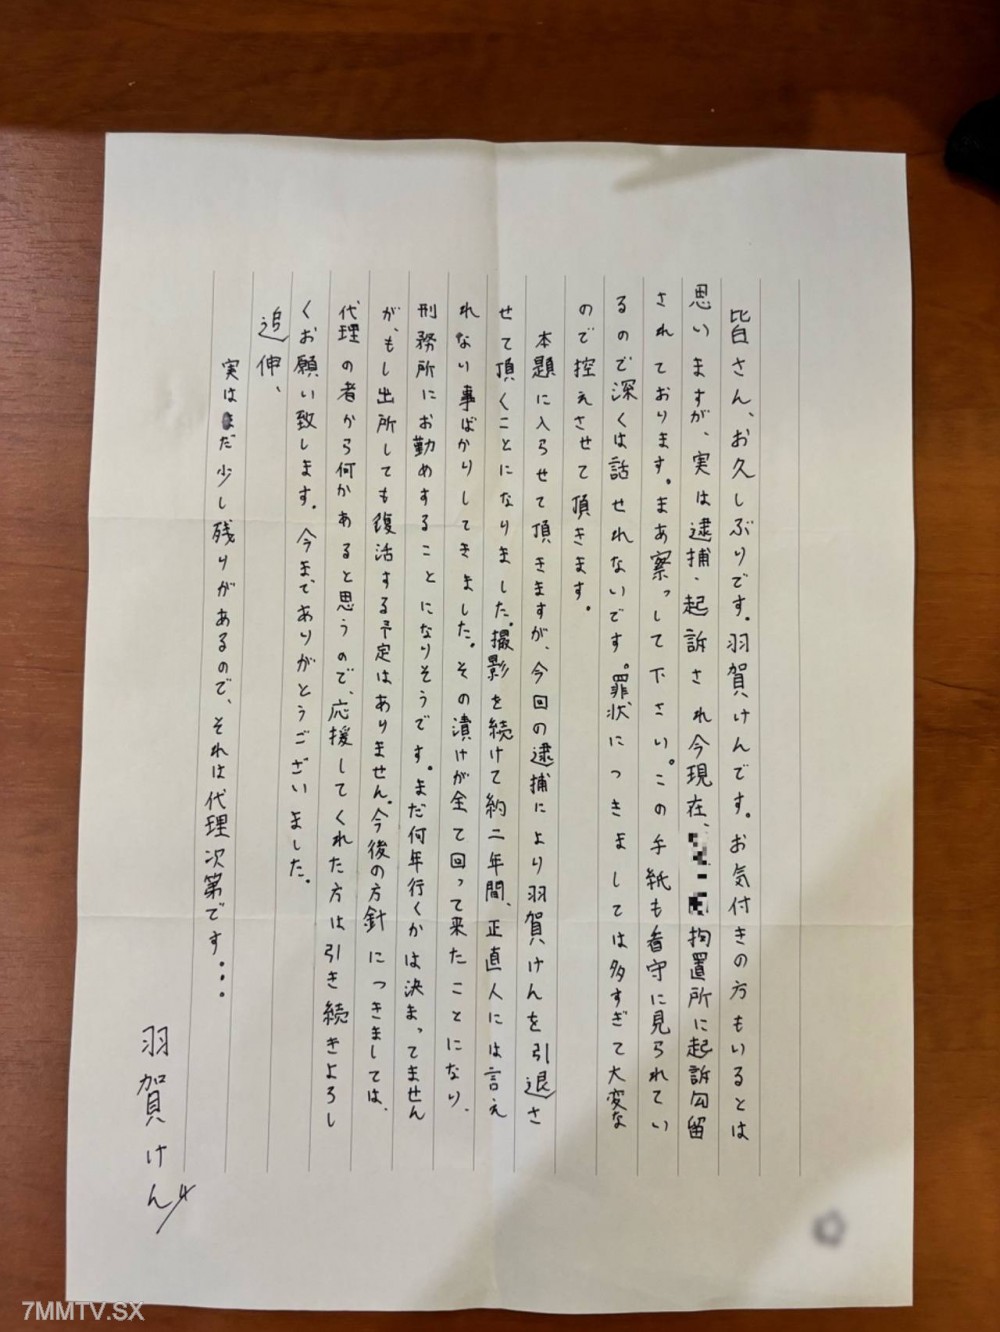 皆さん、お久しぶりです。羽賀けんです。お気付きの方もいるとは
思いますが、実は逮捕・起訴され今現在、拘置所に起訴勾留
されております。まあ察っして下さい。この手紙も看守に見られてい
るので深くは話せれないです。罪状につきましては多すぎて大変な
ので控えさせて頂きます。
本題に入らせて頂きますが、今回の逮捕により羽賀けんを引退さ
せて頂くことになりました。撮影を続けて約二年間、正直人には言え
れない事ばかりしてきました。その漬けが全て回って来たことになり、
刑務所にお勤めすることになりそうです。まだ何年行くかは決まってません
が、もし出所しても復活する予定はありません。今後の方針につきましては、
代理の者から何かあると思うので、応援してくれた方は引き続きよろし
くお願い致します。今まであありがとうございました。
追伸、
実はまだ少し残りがあるので、それは代理次第です...
羽賀けん
7MMTV.SX